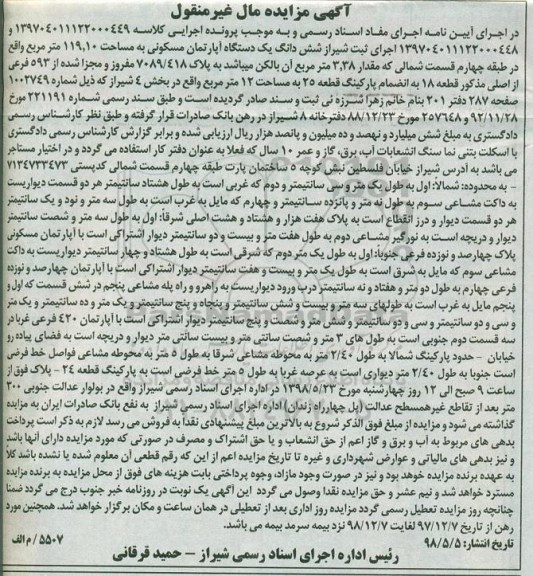 آگهی مزایده مال غیرمنقول
در اجرای آیین نامه اجرای مفاد اسناد رسمی و به موجب پرونده اجرایی کلاسه ۱۳۹۷۰۴۰۱۱۱۲۲۰۰۰۴۴۹ و
۱۳۹۷۰۴۰۱۱۱۲۲۰۰۰۴۴۸ اجرای ثبت شیراز شش دانگ یک دستگاه آپارتمان مسکونی به مساحت ۱۱۹,۱۰ متر مربع واقع
در طبقه چهارم قسمت شمالی که مقدار ۳,۳۸ متر مربع آن بالکن میباشد به پلاک ۷۰۸۹/۴۱۸ مفروز و مجزا شده از ۵۹۳ فرعی
از اصلی مذکور قطعه ۱۸ به انضمام پارکینگ قطعه ۲۵ به مساحت ۱۲ متر مربع واقع در بخش ۴ شیراز که ذیل شماره ۱۰۰۳۷۴۹
صفحه ۲۸۷ دفتر ۲۰۱ بنام خانم زهرا شرزه نی ثبت و سند صادر گردیده است و طبق سند رسمی شماره ۲۲۱۱۹۱ مورخ
۹۲/۱۱/۲۸ و ۲۰۷۶۴۸ مورخ ۸۸/۱۲/۲۳ دفترخانه ۸ شیراز در رهن بانک صادرات قرار گرفته و طبق نظر کارشناس رسمی
دادگستری به مبلغ شش میلیارد و نهصد و ده میلیون و پانصد هزار ریال ارزیابی شده و برابر گزارش کارشناس رسمی دادگستری
با اسکلت بتنی نما سنگ انشعابات آب، برق، گاز و عمر ۱۰ سال که فعلا به عنوان دفتر کار استفاده می گردد و در اختیار مستاجر
می باشد به آدرس شیراز خیابان فلسطین نبش کوچه ۵ ساختمان پارت طبقه چهارم قسمت شمالی کدپستی ۷۱۳۴۷۳۳۴۷۳
- به محدوده: شمالا: اول به طول یک متر و سی سانتیمتر و دوم که غربی است به طول هشتاد سانتیمتر هر دو قسمت دیواریست
به داکت مشاعی سوم به طول نه متر و پانزده سانتیمتر و چهارم که مایل به غرب است به طول سه متر و نود و یک سانتیمتر
هر دو قسمت دیوار و درز انقطاع است به پلاک هفت هزار و هشتاد و هشت اصلی شرقا: اول به طول سه متر و شصت سانتیمتر
دیوار و دریچه است به نورگیر مشاعی دوم به طول هفت متر و بیست و دو سانتیمتر دیوار اشتراکی است با آپارتمان مسکونی
پلاک چهارصد و نوزده فرعی جنوبا: اول به طول یک متر دوم که شرقی است به طول هشتاد و چهار سانتیمتر دیواریست به داکت
مشاعی سوم که مایل به شرق است به طول یک متر و بیست و هفت سانتیمتر دیوار اشتراکی است با آپارتمان چهارصد و نوزده
فرعی چهارم به طول دو متر و هفتاد و نه سانتیمتر درب ورود دیواریست به راهرو و راه پله مشاعی پنجم در شش قسمت که اول و
پنجم مایل به غرب است به طولهای سه متر و بیست و شش سانتیمتر و پنجاه و پنج سانتیمتر و یک متر و ده سانتیمتر و یک متر
و سی و دو سانتیمتر و سی و دو سانتیمتر و شش متر و شصت و پنج سانتیمتر دیوار اشتراکی است با آپارتمان ۴۲۰ فرعی غربا: در
سه قسمت دوم جنوبی است به طول های ۳ متر و شصت سانتی متر و بیست سانتی متر دیوار و دریچه است به فضای پیاده رو
خیابان – حدود پارکینگ شمالا به طول ۲/۴۰ متر به محوطه مشاعی شرقا به طول ۵ متر به محوطه مشاعی فواصل خط فرضی
است جنوبا به طول ۲/۴۰ متر دیواری است به عرصه غربا به طول ۵ متر خط فرضی است به پارکینگ قطعه ۲۴ – پلاک فوق از
ساعت ۹ صبح الی ۱۲ روز چهارشنبه مورخ ۱۳۹۸/۵/۲۳ در اداره اجرای اسناد رسمی شیراز واقع در بولوار عدالت جنوبی ۳۰۰
متر بعد از تقاطع غیرهمسطح عدالت (پل چهارراه زندان) اداره اجرای اسناد رسمی شیراز به نفع بانک صادرات ایران به مزایده
گذاشته می شود و مزایده از مبلغ فوق الذکر شروع به بالاترین مبلغ پیشنهادی نقدا به فروش می رسد لازم به ذکر است پرداخت
بدهی های مربوط به آب و برق و گاز اعم از حق انشعاب و یا حق اشتراک و مصرف در صورتی که مورد مزایده دارای آنها باشد
و نیز بدهی های مالیاتی و عوارض شهرداری و غیره تا تاریخ مزایده اعم از این که رقم قطعی آن معلوم شده یا نشده باشد کلا
به عهده برنده مزایده خواهد بود و نیز در صورت وجود مازاد، وجوه پرداختی بابت هزینه های فوق از محل مزایده به برنده مزایده
مسترد خواهد شد و نیم عشر و حق مزایده نقدا وصول می گردد این آگهی یک نوبت در روزنامه خبر جنوب درج می گردد ضمنا
چنانچه روز مزایده تعطیل رسمی گردد مزایده روز اداری بعد از تعطیلی در همان ساعت و مکان برگزار خواهد شد. همچنین مورد
رهن از تاریخ ۹۷/۱۲/۷ لغایت ۹۸/۱۲/۷ نزد بیمه سرمد بیمه می باشد.
تاریخ انتشار: ۹۸/۵/۵
۵۵۰۷ / م الف
رئیس اداره اجرای اسناد رسمی شیراز – حمید فرقانی